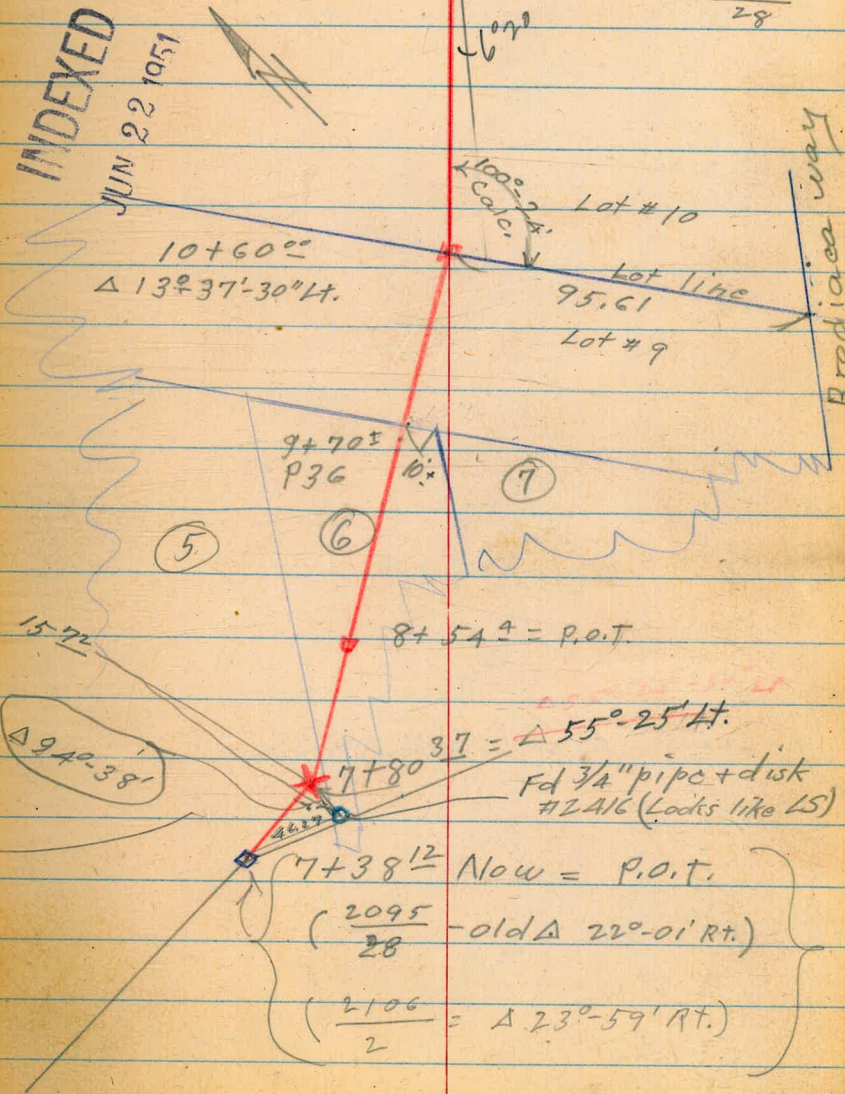 28
INDEXED
JUN 22 1951
100°-24'
Calc.
Lot #10
10+60 00
Δ 13°-37'-30" Lt.
Lot line
95.61
Lot #9
9+70 ±
P36
10' ±
7
6
5
8+54 4 = P.O.T.
15 72
Δ 94°-38'
7+80 37 = Δ 55°-25' Lt.
Fd 3/4" pipe + disk
#2416 (Looks like LS)
46.27
7+38 12 Now = P.O.T.
(2095/28 - old Δ 22°-01' Rt.)
(2106/2 = Δ 23°-59' Rt.)